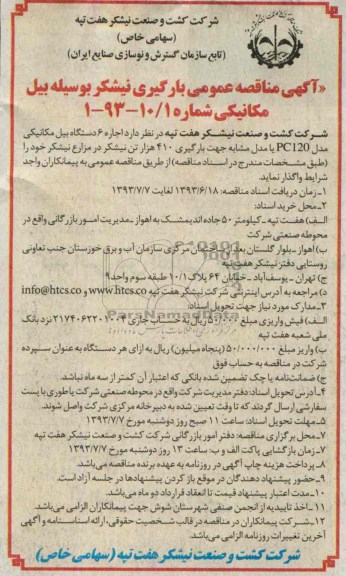 شرکت کشت و صنعت نیشکر هفت تپه
(سهامی خاص)
(تابع سازمان گسترش و نوسازی صنایع ایران)
«آگهی مناقصه عمومی بارگیری نیشکر بوسیله بیل
مکانیکی شماره ۱۰/۱-۹۳-۱
شرکت کشت و صنعت نیشکر هفت تپه در نظر دارد اجاره ۶ دستگاه بیل مکانیکی
مدل PC120 یا مدل مشابه جهت بارگیری ۴۱۰ هزار تن نیشکر در مزارع نیشکر خود را
(طبق مشخصات مندرج در اسناد مناقصه) از طریق مناقصه عمومی به پیمانکاران واجد
شرایط واگذار نماید.
۱- زمان دریافت اسناد مناقصه: ۱۳۹۳/۶/۱۸ لغایت ۱۳۹۳/۷/۷
۲- محل خرید اسناد:
الف) هفت تپه - کیلومتر ۵۰ جاده اندیمشک به اهواز - مدیریت امور بازرگانی واقع در
محوطه صنعتی شرکت
ب) اهواز - بلوار گلستان بعد از ساختمان مرکزی سازمان آب و برق خوزستان جنب تعاونی
روستایی دفتر نیشکر هفت تپه
ج) تهران - یوسف آباد - خیابان ۶۴ پلاک ۱۰/۱ طبقه سوم واحد ۹
د) مراجعه به آدرس اینترنتی شرکت نیشکر هفت تپه www.htcs.co و info@htcs.co
۳- مدارک مورد نیاز جهت تحویل اسناد:
الف) فیش واریزی مبلغ ۵۰۰/۰۰۰ ریال به حساب جاری ۲۱۷۴۰۶۲۲۰۹۰۰۴ نزد بانک
ملی شعبه هفت تپه
ب) واریز مبلغ ۵۰/۰۰۰/۰۰۰ (پنجاه میلیون) ریال به ازای هر دستگاه به عنوان سپرده
شرکت در مناقصه به حساب فوق
ج) ضمانتنامه یا چک تضمین شده بانکی که اعتبار آن کمتر از سه ماه نباشد.
۴- آدرس تحویل اسناد: دفتر مدیریت شرکت واقع در محوطه صنعتی شرکت یا طوری با پست
سفارشی ارسال گردند که تا وقت تعیین شده به دبیرخانه مرکزی شرکت واصل شوند.
۵- مهلت تحویل اسناد: ساعت ۱۱ صبح روز دوشنبه مورخ ۱۳۹۳/۷/۷
۶- محل برگزاری مناقصه: دفتر امور بازرگانی شرکت کشت و صنعت نیشکر هفت تپه
۷- زمان بازگشایی پاکت الف و ب: ساعت ۱۳ روز دوشنبه مورخ ۱۳۹۳/۷/۷
۸- پرداخت هزینه چاپ آگهی در روزنامه به عهده برنده مناقصه می‌باشد.
۹- حضور پیشنهاد دهندگان در موقع باز کردن پیشنهادها در جلسه آزاد است.
۱۰- مدت اعتبار پیشنهاد قیمت تا انعقاد قرارداد دو ماه می‌باشد.
۱۱- اخذ تاییدیه از انجمن صنفی شهرستان شوش جهت پیمانکاران الزامی می‌باشد.
۱۲- شرکت پیمانکاران در مناقصه در قالب شخصیت حقوقی، ارائه اساسنامه و آگهی
آخرین تغییرات روزنامه الزامی می‌باشد.
شرکت کشت و صنعت نیشکر هفت تپه (سهامی خاص)